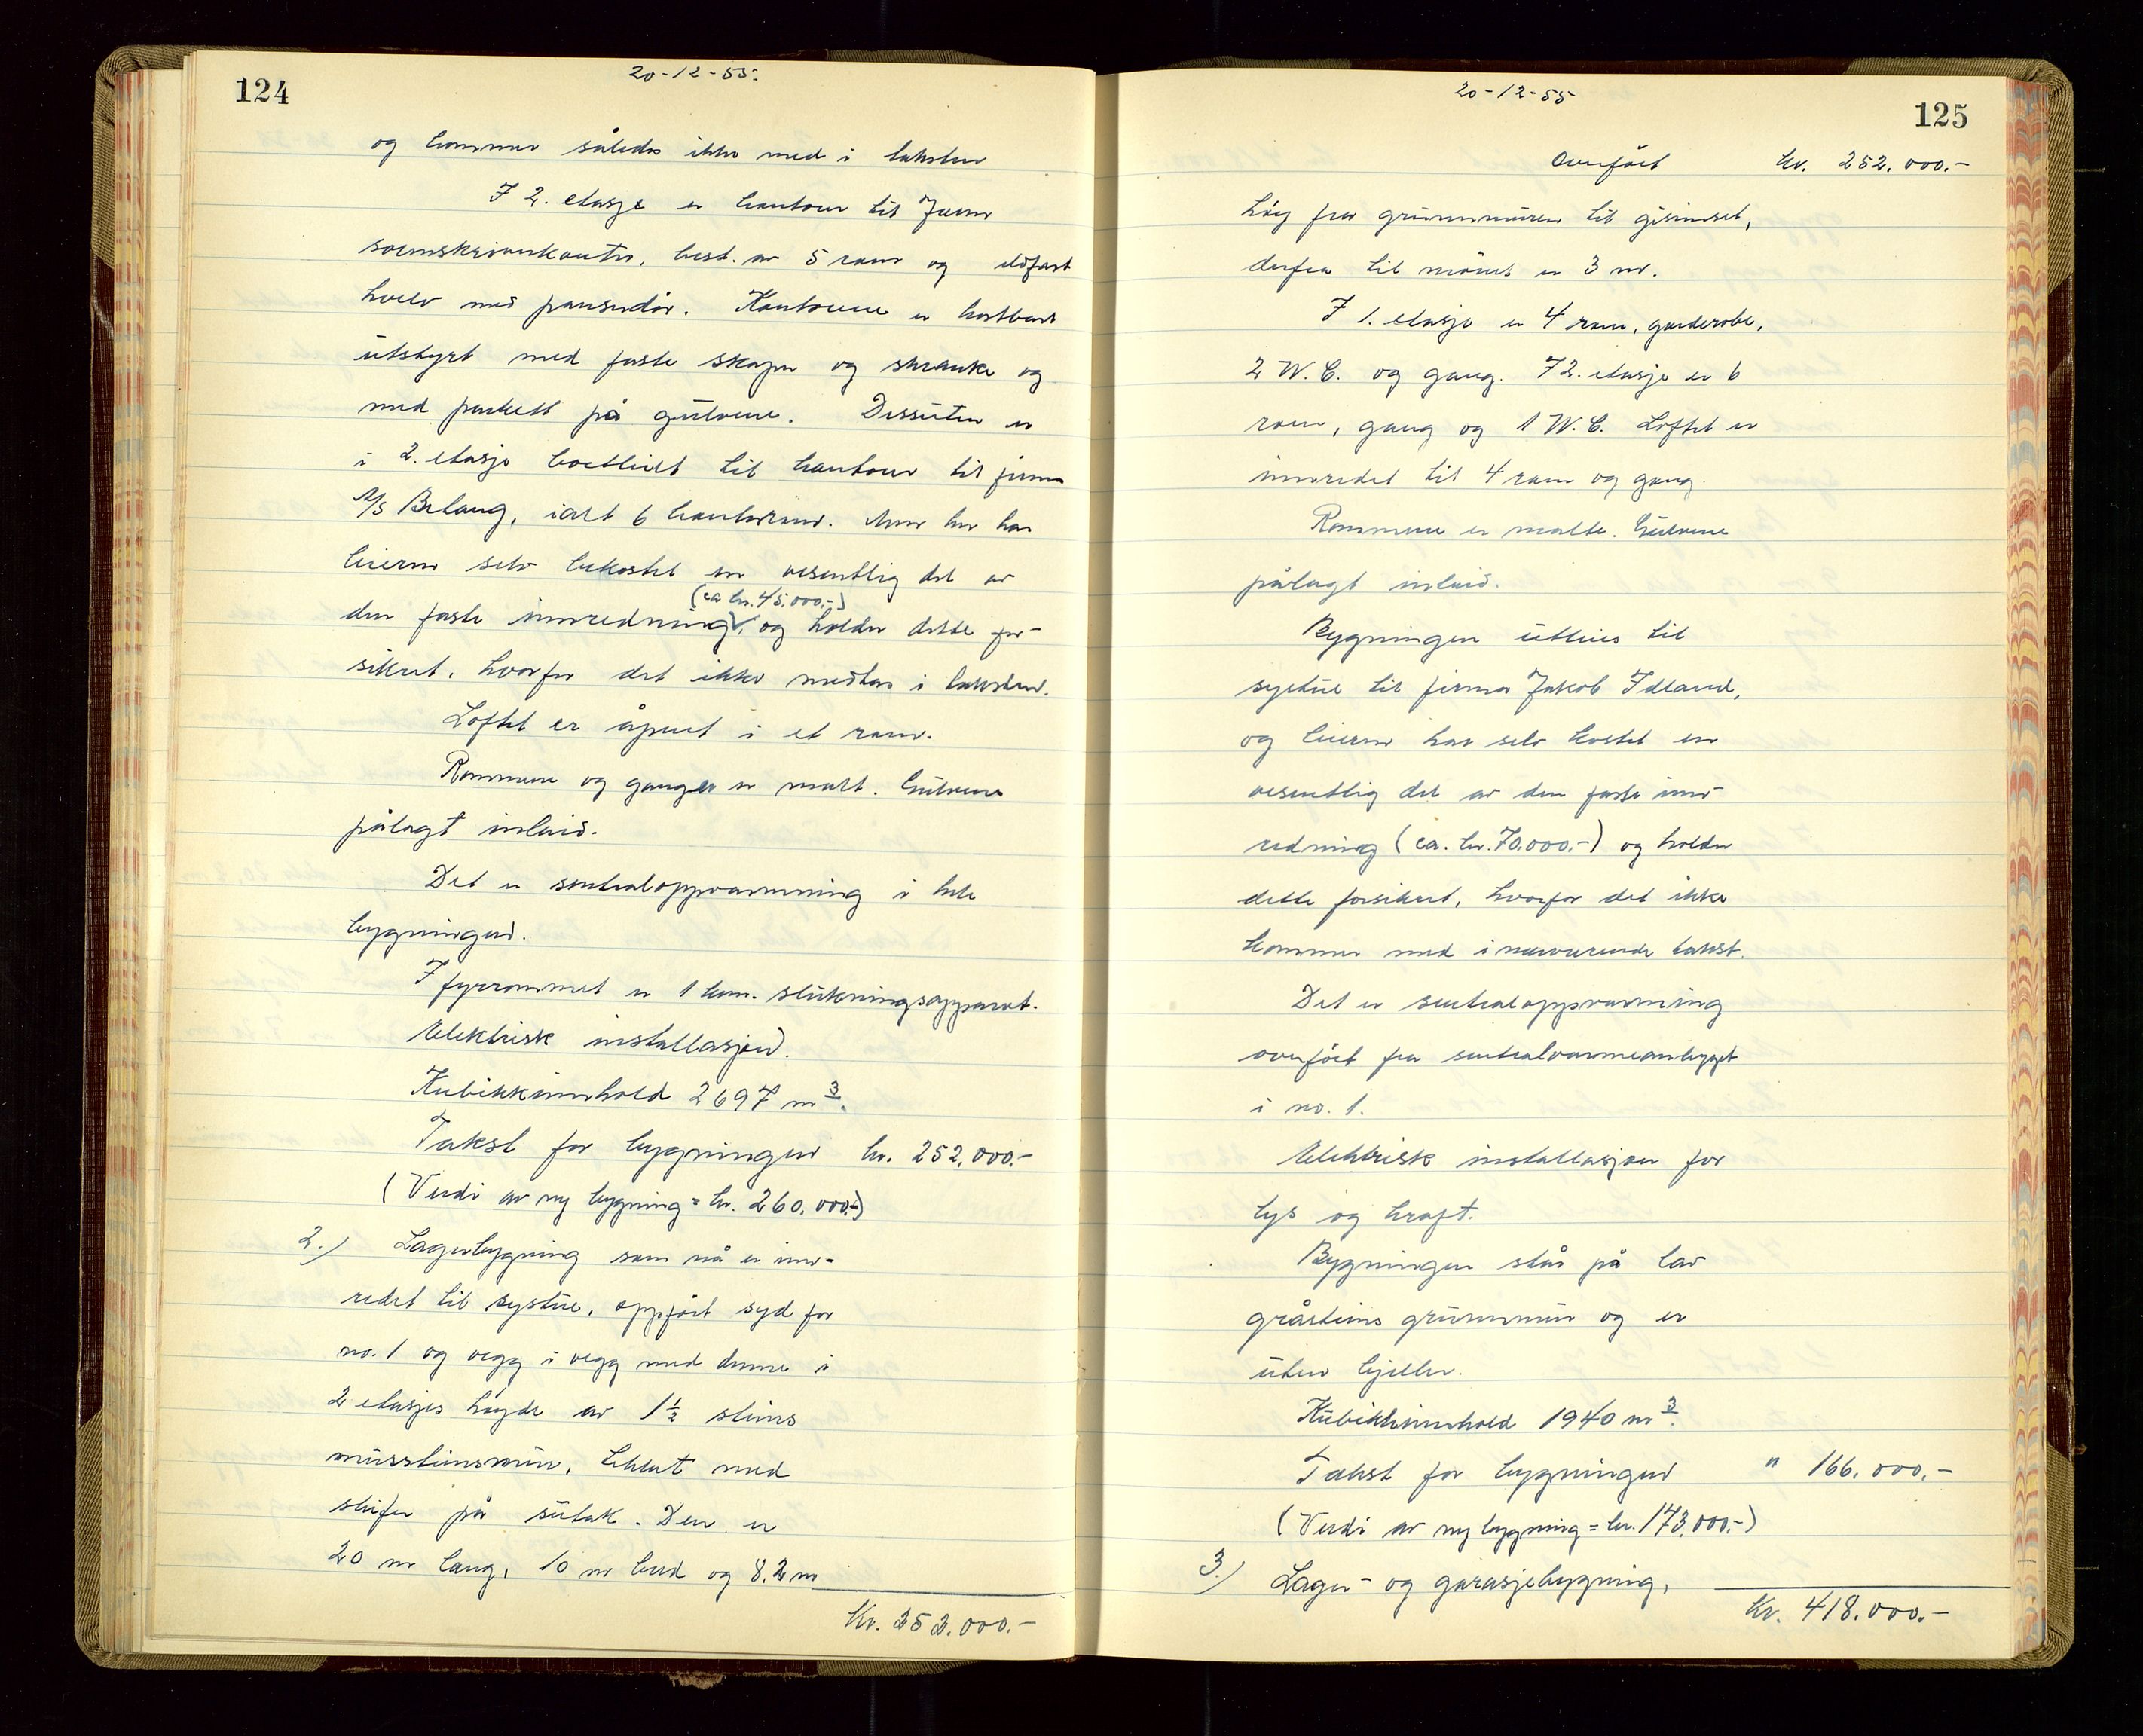 124
20-12-55.
og kommer således ikke med i taksten
I 2. etasje er kontor til Jæren
sorenskriverkontor, best. av 5 rom og ildfast
hvelv med panserdør. Kontorene er kostbart
utstyrt med faste skaper og skranke og
med parkett på gulvene. Dessuten er
i 2. etasje bortleiet til kontor til firma
A/S Belang, ialt 6 kontorrom. Men her har
leieren selv bekostet en vesentlig del av
(ca kr. 45.000.-)
den faste innredning, og holder dette for-
sikret, hvorfor det ikke medtas i taksten.
Loftet er åpent i et rom.
Rommene og ganger er malt. Gulvene
pålagt inlaid.
Det er sentraloppvarmning i hele
bygningen.
I fyrrommet er 1 kem. slukningsapparat.
Elektrisk installasjon.
Kubikkinnhold 2697 m³.
Takst for bygningen kr. 252.000.-
(Verdi av ny bygning = kr. 260.000.-)
2.) Lagerbygning som nå er inn-
redet til systue, oppført syd for
no. 1 og vegg i vegg med denne i
2 etasjes høyde av 1½ steins
mursteinsmur, tekket med
skifer på sutak. Den er
20 m lang, 10 m bred og 8.2 m
Kr. 252.000.-
20-12-55
125
Overført kr. 252.000.-
høy fra grunnmuren til gesimset,
derfra til mønet er 3 m.
I 1. etasje er 4 rom, garderobe,
2 W.C. og gang. I 2. etasje er 6
rom, gang og 1 W.C. Loftet er
innredet til 4 rom og gang.
Rommene er malte. Gulvene
pålagt inlaid.
Bygningen utleies til
systue til firma Jakob Idland,
og leieren har selv kostet en
vesentlig del av den faste inn-
redning (ca. kr. 70.000.-) og holder
dette forsikret, hvorfor det ikke
kommer med i nærværende takst.
Det er sentraloppvarmning
overført fra sentralvarmeanlegget
i no. 1.
Elektrisk installasjon for
lys og kraft.
Bygningen står på lav
gråsteins grunnmur og er
uten kjeller.
Kubikkinnhold 1940 m³.
Takst for bygningen " 166.000.-
(Verdi av ny bygning = kr. 173.000.-)
3.) Lager- og garasjebygning,
Kr. 418.000.-